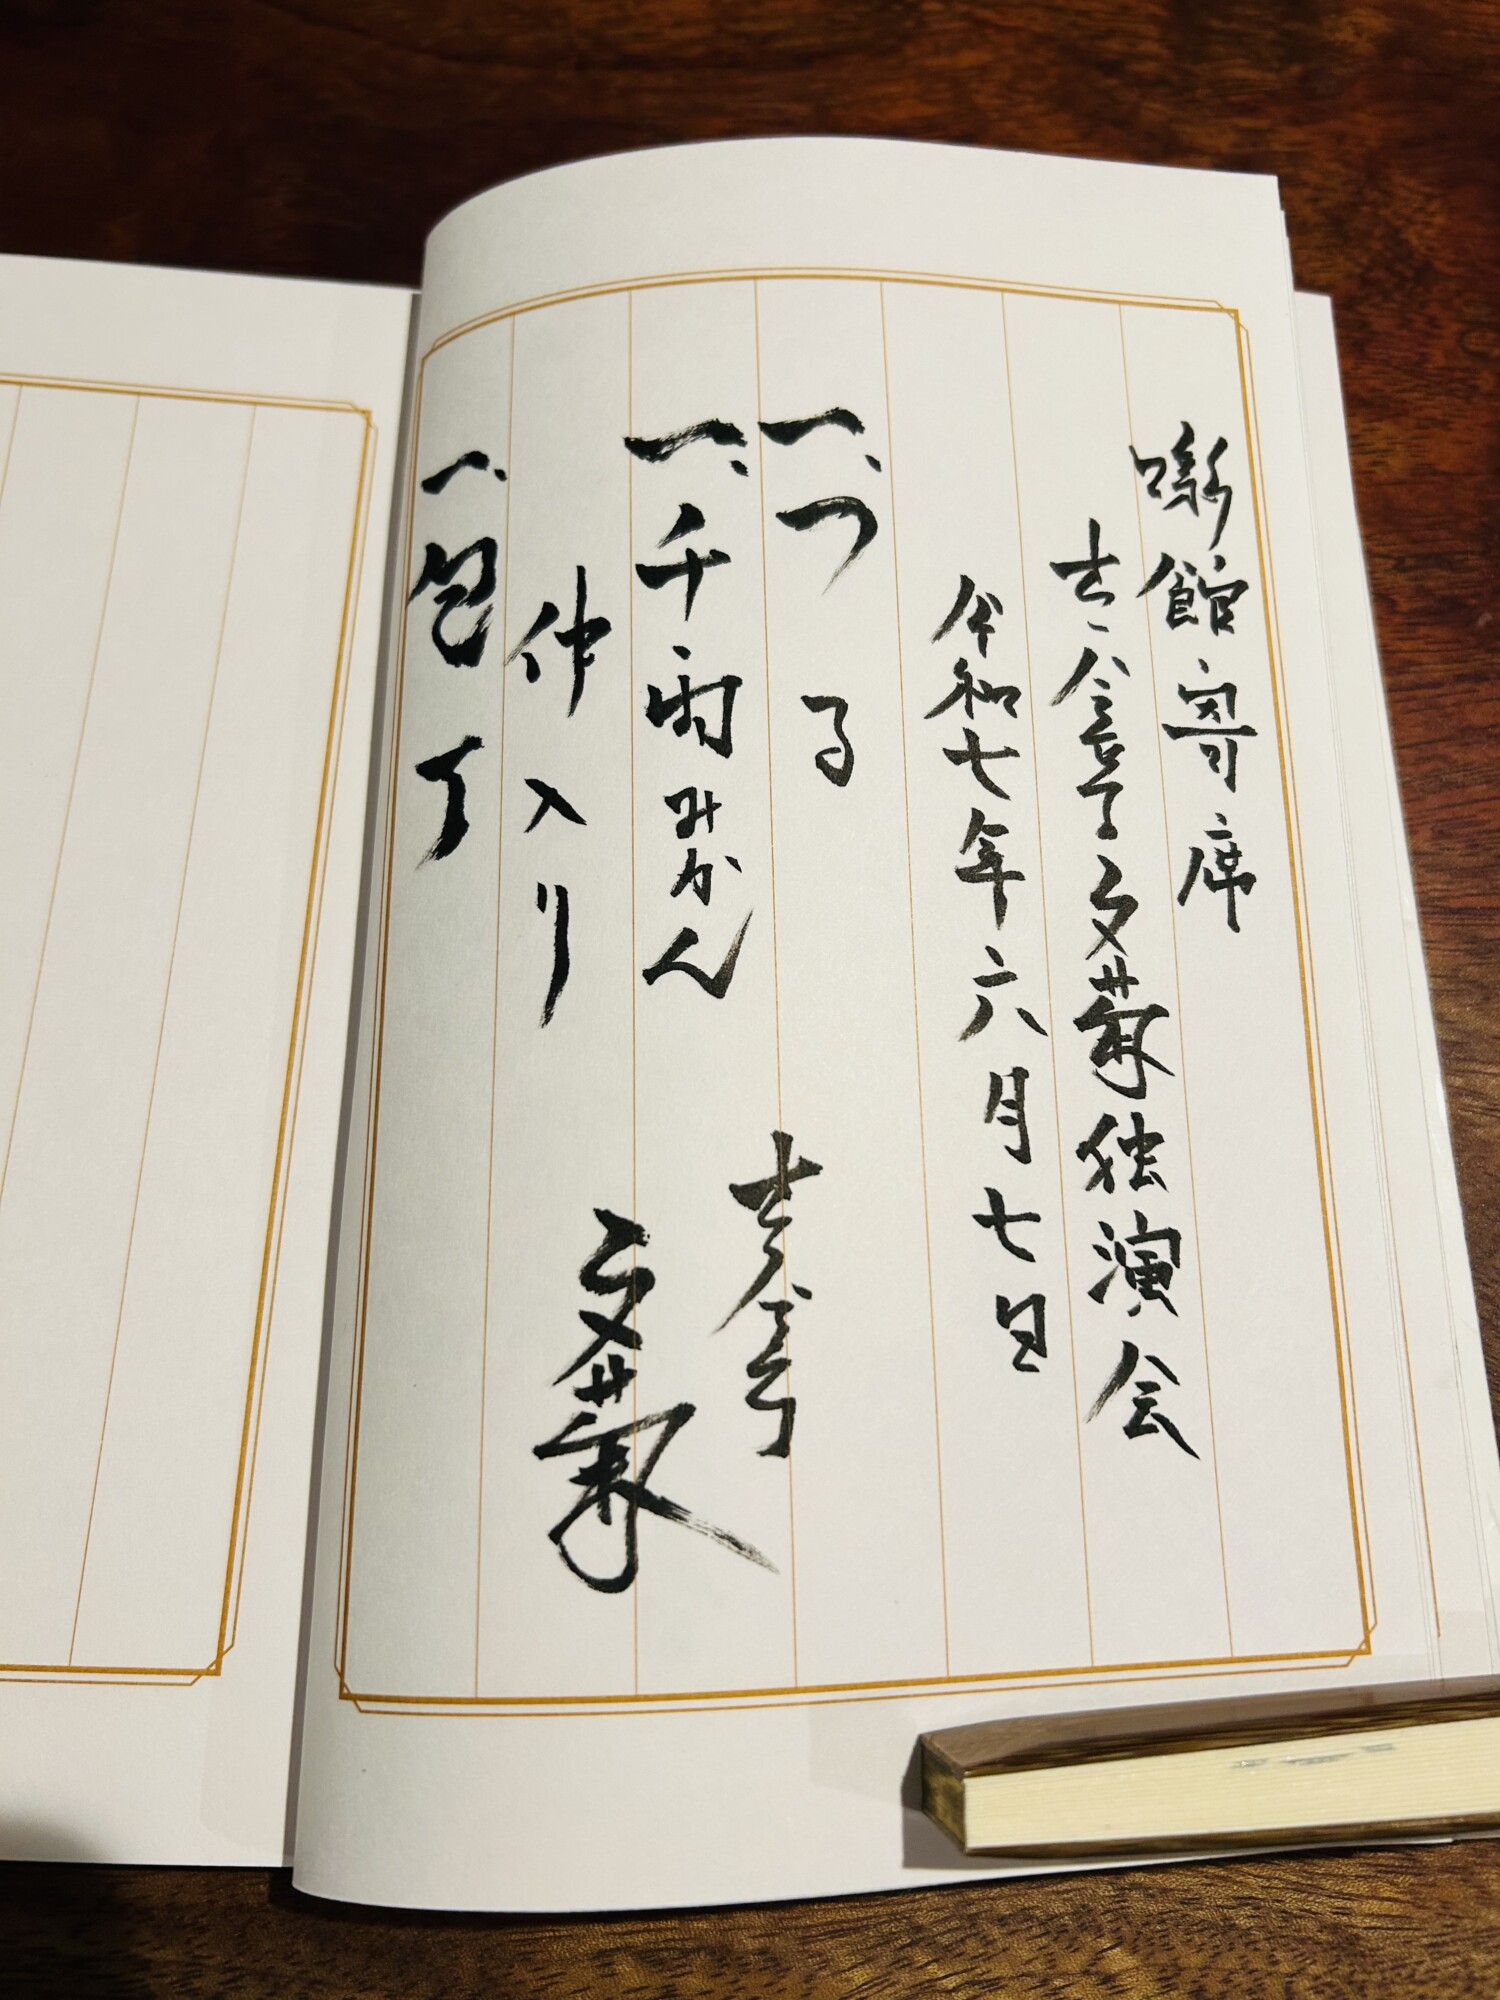 噺館寄席
古今亭文菊独演会
令和七年六月七日
一、つる
一、千両みかん
仲入り
一、包丁
古今亭
文菊